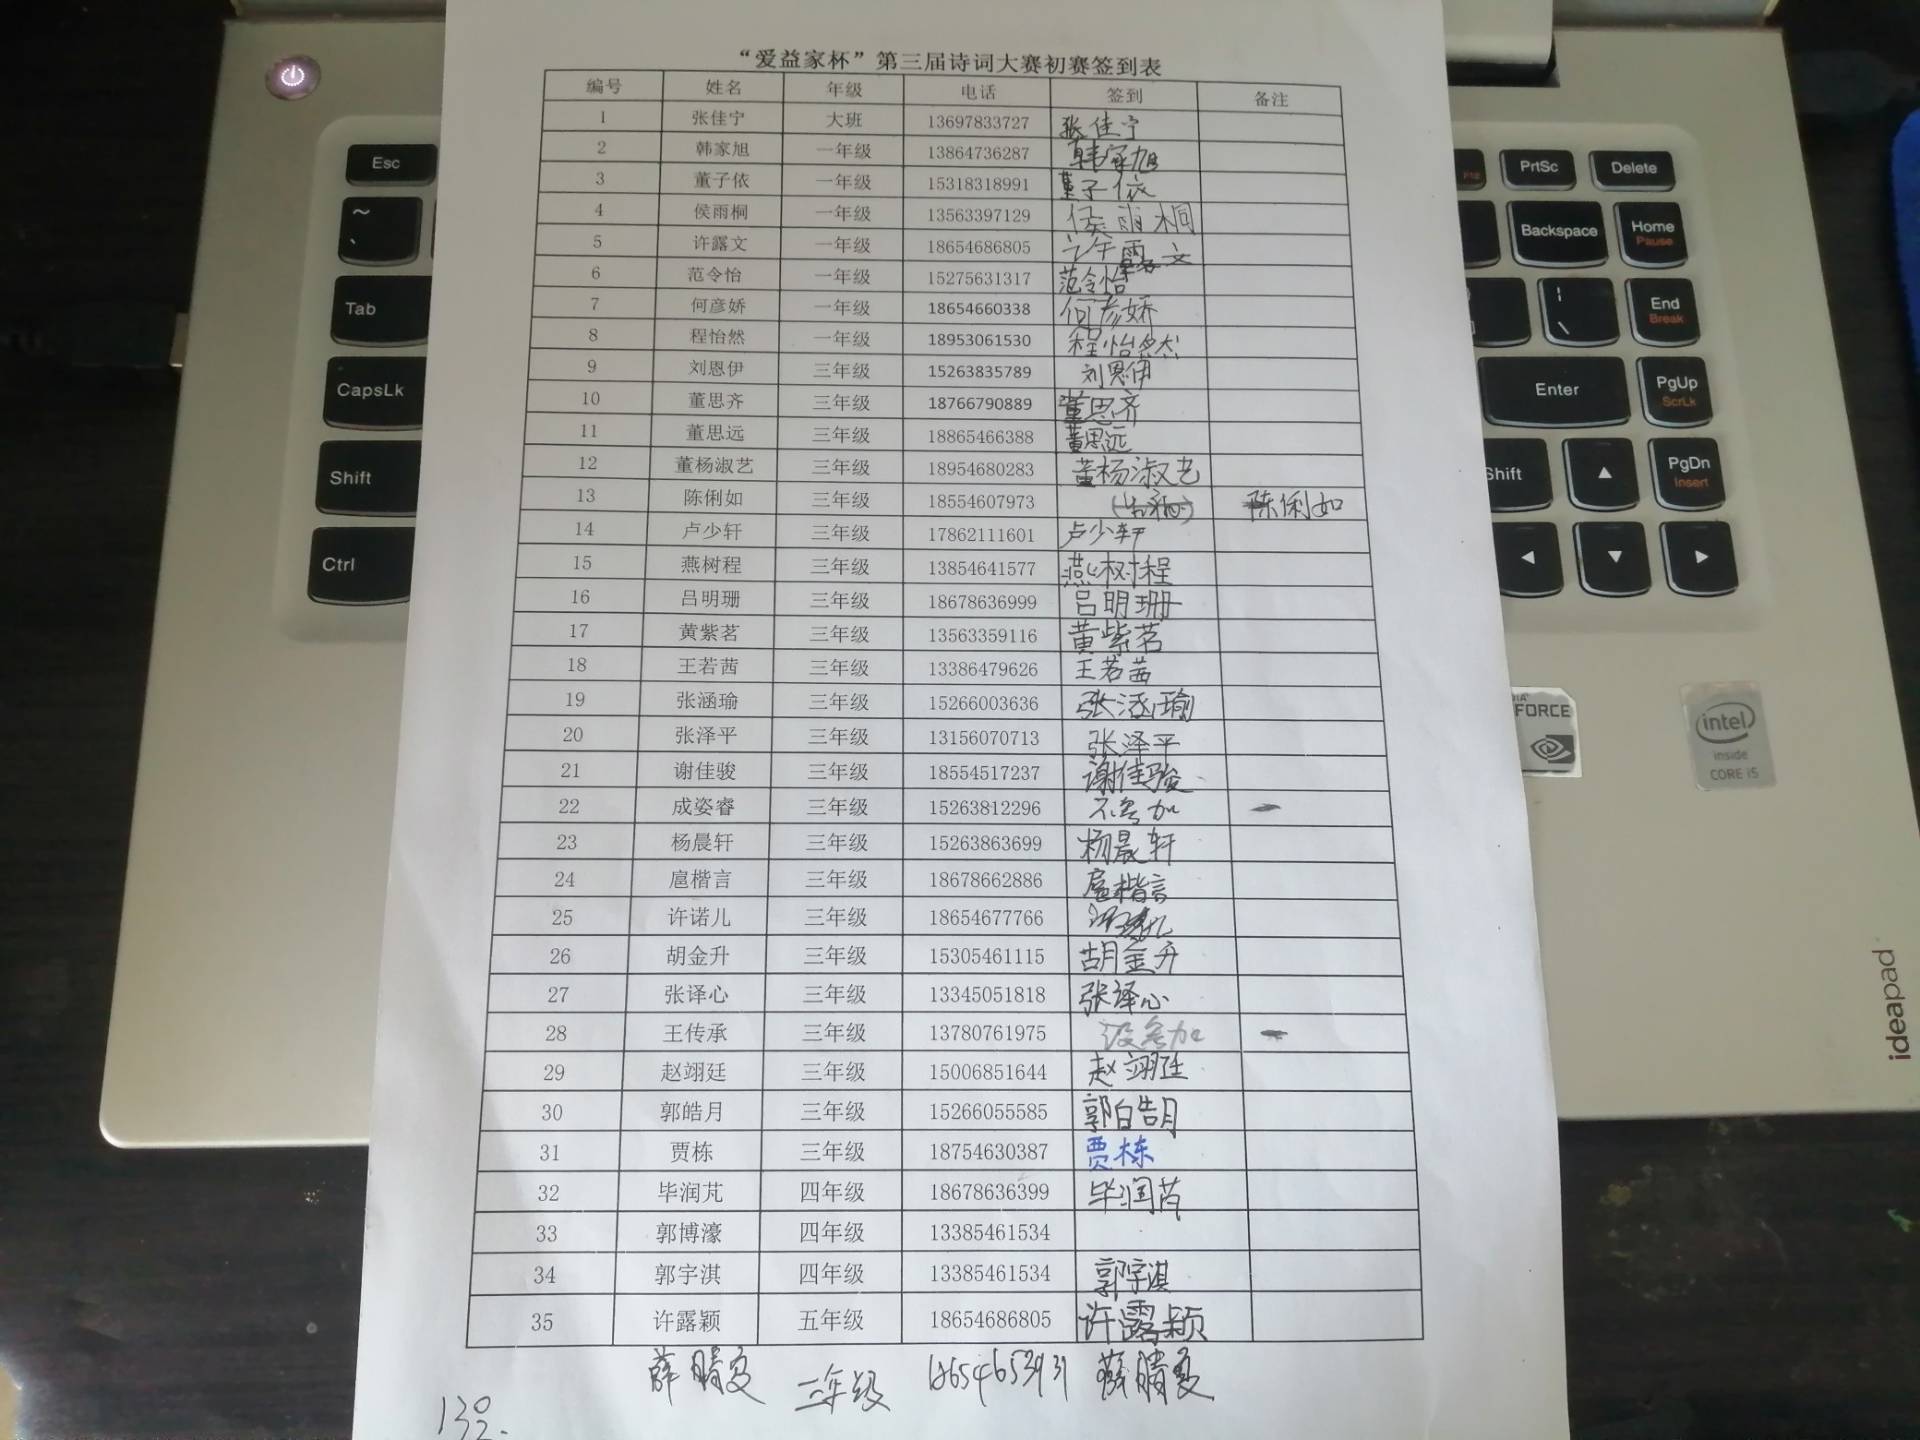 “爱益家杯”第三届诗词大赛初赛签到表
编号 姓名 年级 电话 签到 备注
1 张佳宁 大班 13697833727 张佳宁
2 韩家旭 一年级 13864736287 韩家旭
3 董子依 一年级 15318318991 董子依
4 侯雨桐 一年级 13563397129 侯雨桐
5 许露文 一年级 18654686805 许露文
6 范令怡 一年级 15275631317 范令怡
7 何彦娇 一年级 18654660338 何彦娇
8 程怡然 一年级 18953061530 程怡然
9 刘恩伊 三年级 15263835789 刘恩伊
10 董思齐 三年级 18766790889 董思齐
11 董思远 三年级 18865466388 董思远
12 董杨淑艺 三年级 18954680283 董杨淑艺
13 陈俐如 三年级 18554607973 陈俐如
14 卢少轩 三年级 17862111601 卢少轩
15 燕树程 三年级 13854641577 燕树程
16 吕明珊 三年级 18678636999 吕明珊
17 黄紫茗 三年级 13563359116 黄紫茗
18 王若茜 三年级 13386479626 王若茜
19 张涵瑜 三年级 15266003636 张涵瑜
20 张泽平 三年级 13156070713 张泽平
21 谢佳骏 三年级 18554517237 谢佳骏
22 成姿睿 三年级 15263812296 不参加
23 杨晨轩 三年级 15263863699 杨晨轩
24 扈楷言 三年级 18678662886 扈楷言
25 许诺儿 三年级 18654677766 许诺儿
26 胡金升 三年级 15305461115 胡金升
27 张译心 三年级 13345051818 张译心
28 王传承 三年级 13780761975 没参加
29 赵翊廷 三年级 15006851644 赵翊廷
30 郭皓月 三年级 15266055585 郭皓月
31 贾栋 三年级 18754630387 贾栋
32 毕润芃 四年级 18678636399 毕润芃
33 郭博濠 四年级 13385461534
34 郭宇淇 四年级 13385461534 郭宇淇
35 许露颖 五年级 18654686805 许露颖
薛晴夏 三年级 18654653931 薛晴夏
Esc
~
Tab
CapsLk
Shift
Ctrl
PrtSc Delete
Backspace Home Pause
End Break
Enter PgUp ScrLk
Shift PgDn Insert
FORCE
intel inside CORE i5
ideapad